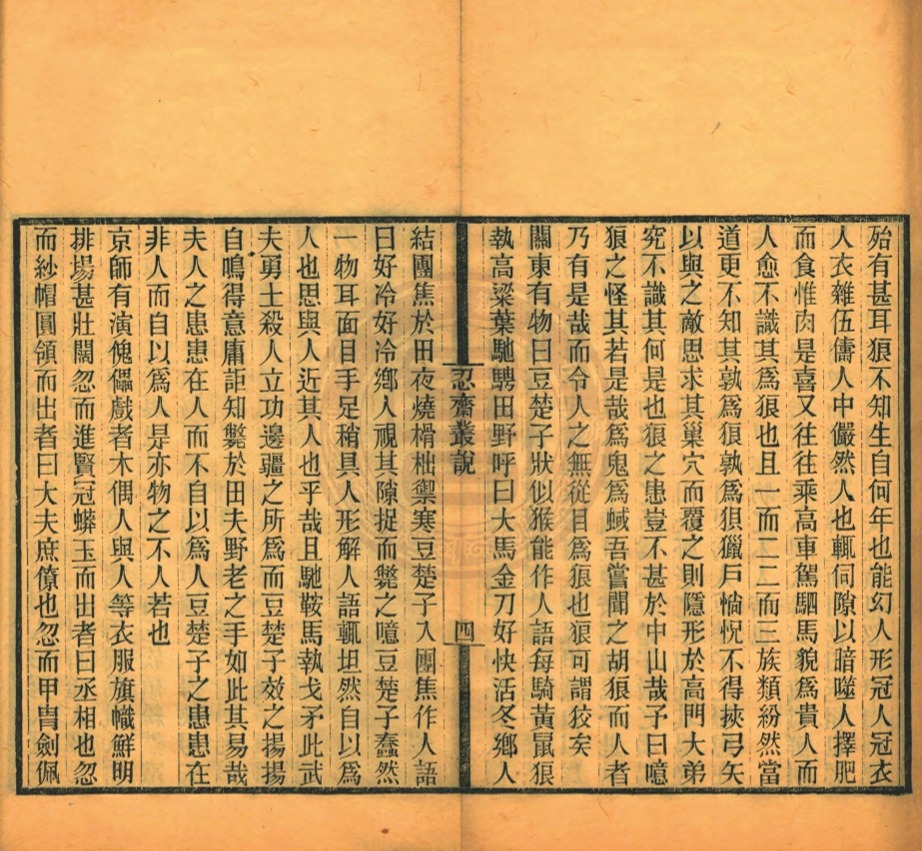 殆有甚耳狼不知生自何年也能幻人形冠人冠衣
人衣雜伍儔人中儼然人也輒伺隙以暗噬人擇肥
而食惟肉是喜又往往乘高車駕駟馬貌爲貴人而
人愈不識其爲狼也且一而二二而三族類紛然當
道更不知其孰爲狼孰爲狽獵戸惝怳不得挾弓矢
以與之敵思求其巢穴而覆之則隱形於高門大弟
究不識其何是也狼之患豈不甚於中山哉予曰噫
狼之怪其若是哉爲鬼爲蜮吾嘗聞之胡狼而人者
乃有是哉而令人之無從目爲狼也狼可謂狡矣
關東有物曰豆楚子狀似猴能作人語每騎黃鼠狼
執高梁葉馳騁田野呼曰大馬金刀好快活冬鄉人
忍齋叢說
四
結團焦於田夜燒榾柮禦寒豆楚子入團焦作人語
曰好冷好冷鄉人視其隙捉而斃之噫豆楚子蠢然
一物耳面目手足稍具人形解人語輒坦然自以爲
人也思與人近其人也乎哉且馳鞍馬執戈矛此武
夫勇士殺人立功邊疆之所爲而豆楚子效之揚揚
自鳴得意庸詎知斃於田夫野老之手如此其易哉
夫人之患患在人而不自以爲人豆楚子之患患在
非人而自以爲人是亦物之不人若也
京師有演傀儡戲者木偶人與人等衣服旗幟鮮明
排場甚壯闊忽而進賢冠蟒玉而出者曰丞相也忽
而紗帽圓領而出者曰大夫庶僚也忽而甲冑劍佩